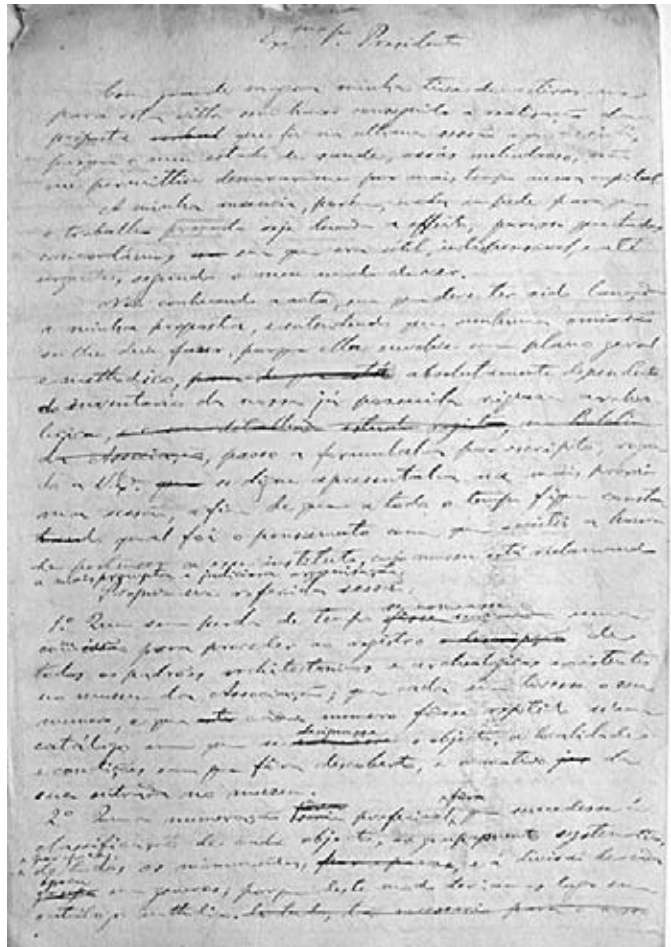 Ex.mo Sr. Presidente
Com grande magoa minha tive de retirar-me
para esta villa sem haver conseguido a realisação da
proposta que fiz na ultima sessão a que assisti,
porque o meu estado de saude, assás melindroso, não
me permittiu demorar-me por mais tempo nessa capital.
A minha ausencia, porém, nada impede para que
o trabalho proposto seja levado a effeito, porisso que todos
concordámos em que era util, indispensavel, e até
urgente, segundo o meu modo de ver.
Não conhecendo a acta, em que deve ter sido lançada
a minha proposta, e entendendo que nenhuma omissão
se lhe deve fazer, porque ella envolve um plano geral
e methodico, absolutamente dependente
do inventario da nossa já possuida riqueza archeo-
logica, e a um detalhado estudo no Boletim
da Associação, passo a formulal-a por escripto, rogan-
do a V. Ex.ª que se digne apresental-a na mais proxi-
ma sessão, afim de que a todo o tempo fique consta
qual foi o pensamento com que acceitei a honra
de pertencer a esse instituto, cujo museu está reclamando
a mais prompta e judiciosa organisação.
Propuz na referida sessão:
1.º Que sem perda de tempo se nomeasse uma
commissão para proceder ao registro de
todos os padrões architectonicos e archeologicos existentes
no museu da Associação; que cada um tivesse o seu
numero, e que este numero fosse repetido n'um
catálogo em que se designasse o objecto, a localidade
e condições em que fôra descoberto, e o motivo da
sua entrada no museu.
2.º Que a numeração fôra que succedesse á
classificação de cada objecto, o grupamento systematico
de todos os numerados, e a divisão
época em generos; porque deste modo teriamos logo um
catálogo methodico, para o